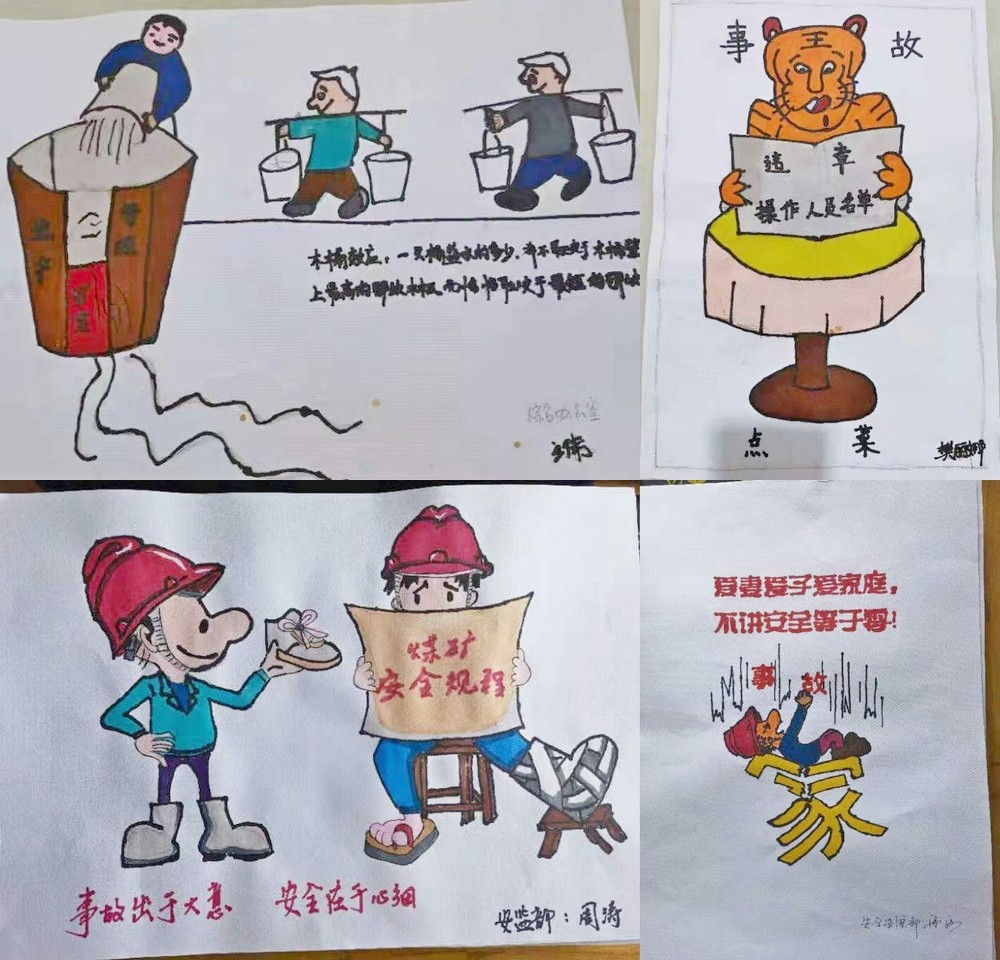 木桶效应：一只桶盛水的多少，并不取决于木桶壁
上最高的那块木板，而恰恰取决于最短的那块
事 故
违 章
操作人员名单
点 菜
樊丽娜
煤矿
安全规程
事故出于大意 安全在于心细
安监部：周涛
爱妻爱子爱家庭，
不讲安全等于零！
事 故
家